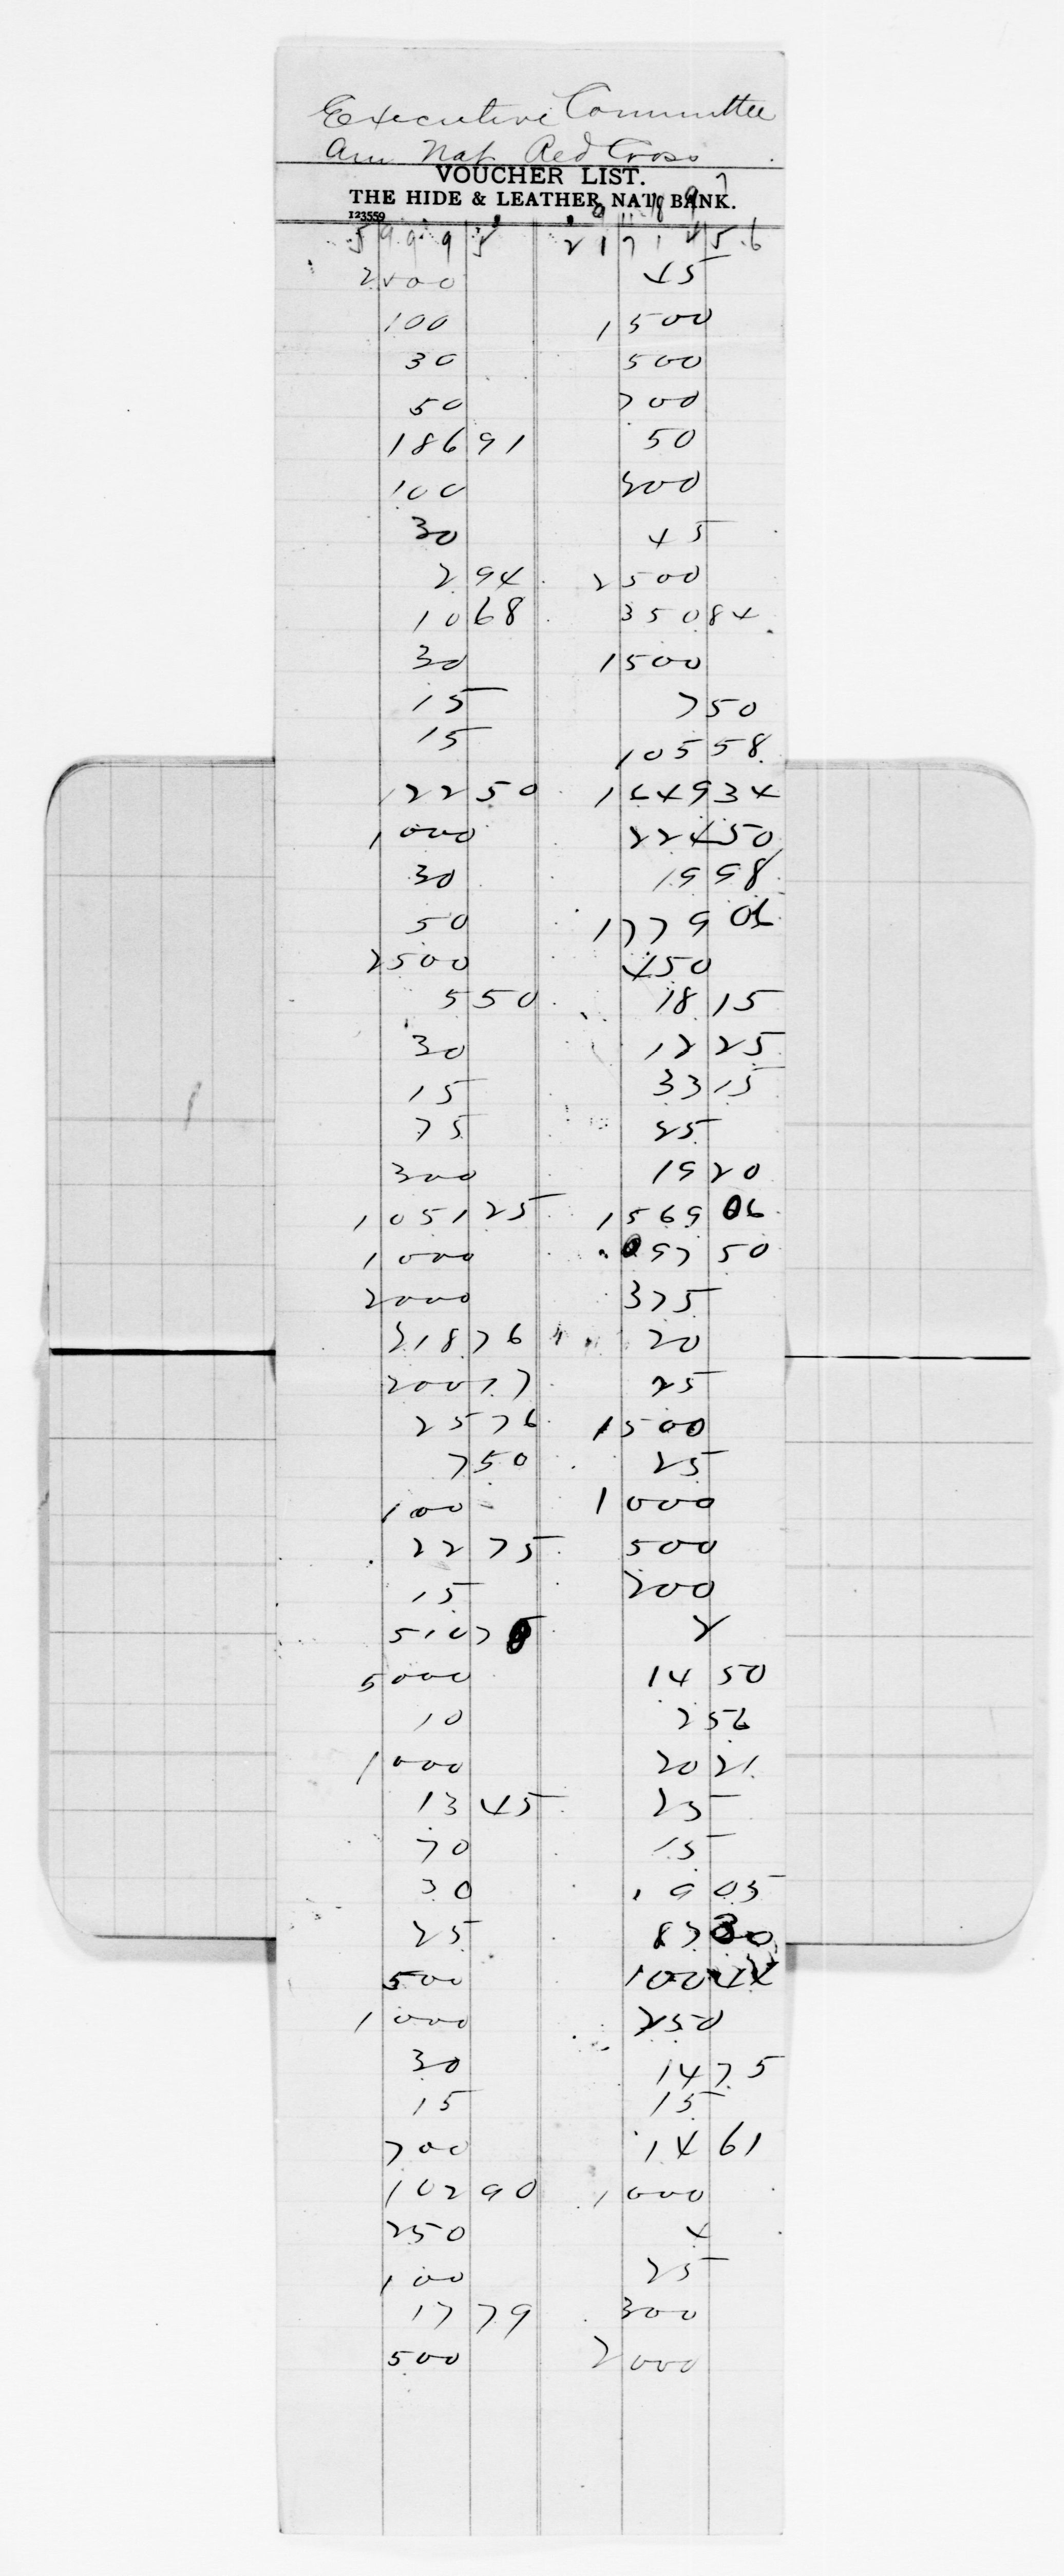 Executive Committee
Am Nat Red Cross
VOUCHER LIST.
THE HIDE & LEATHER NAT'L BANK.
123559
45
100 1 500
30 500
50 700
186 91 50
100
30 45
2 94 2 500
10 68 350 84
30 1 500
15 7 50
15 105 58
122 50 34
1 000 224 50
30 19 98
50 1 779
2 500 450
5 50 18 15
30 12 25
15 33 15
75 25
300 19 20
1 051 25 1 569 06
1 000 97 50
2 000 375
218 76 20
200 17 25
25 76 1 500
7 50 25
100 1 000
22 75 500
15 200
510 2
5 000 14 50
10 2 56
1 000 20 21
13 45 25
70 15
30 19 05
25 87
500 100 44
1 000 250
30 14 75
15 15
700 14 61
102 90 1 000
250 4
100 25
17 79 300
500 2 000